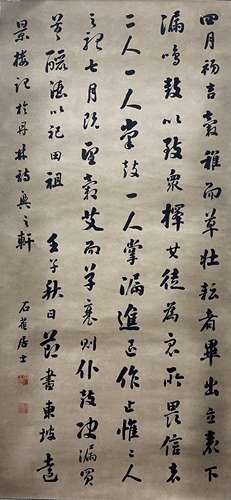 四月初吉穀稚而草壮耘者畢出立表下
漏鳴鼓以致衆擇其徒為衆所畏信者
二人一人掌鼓一人掌漏進退作止惟二人
之聽七月既望穀艾而草衰則仆鼓决漏買
羊釃酒以祀田祖 壬子秋日節書東坡遠
景樓記於丹林詩興之軒 石居士